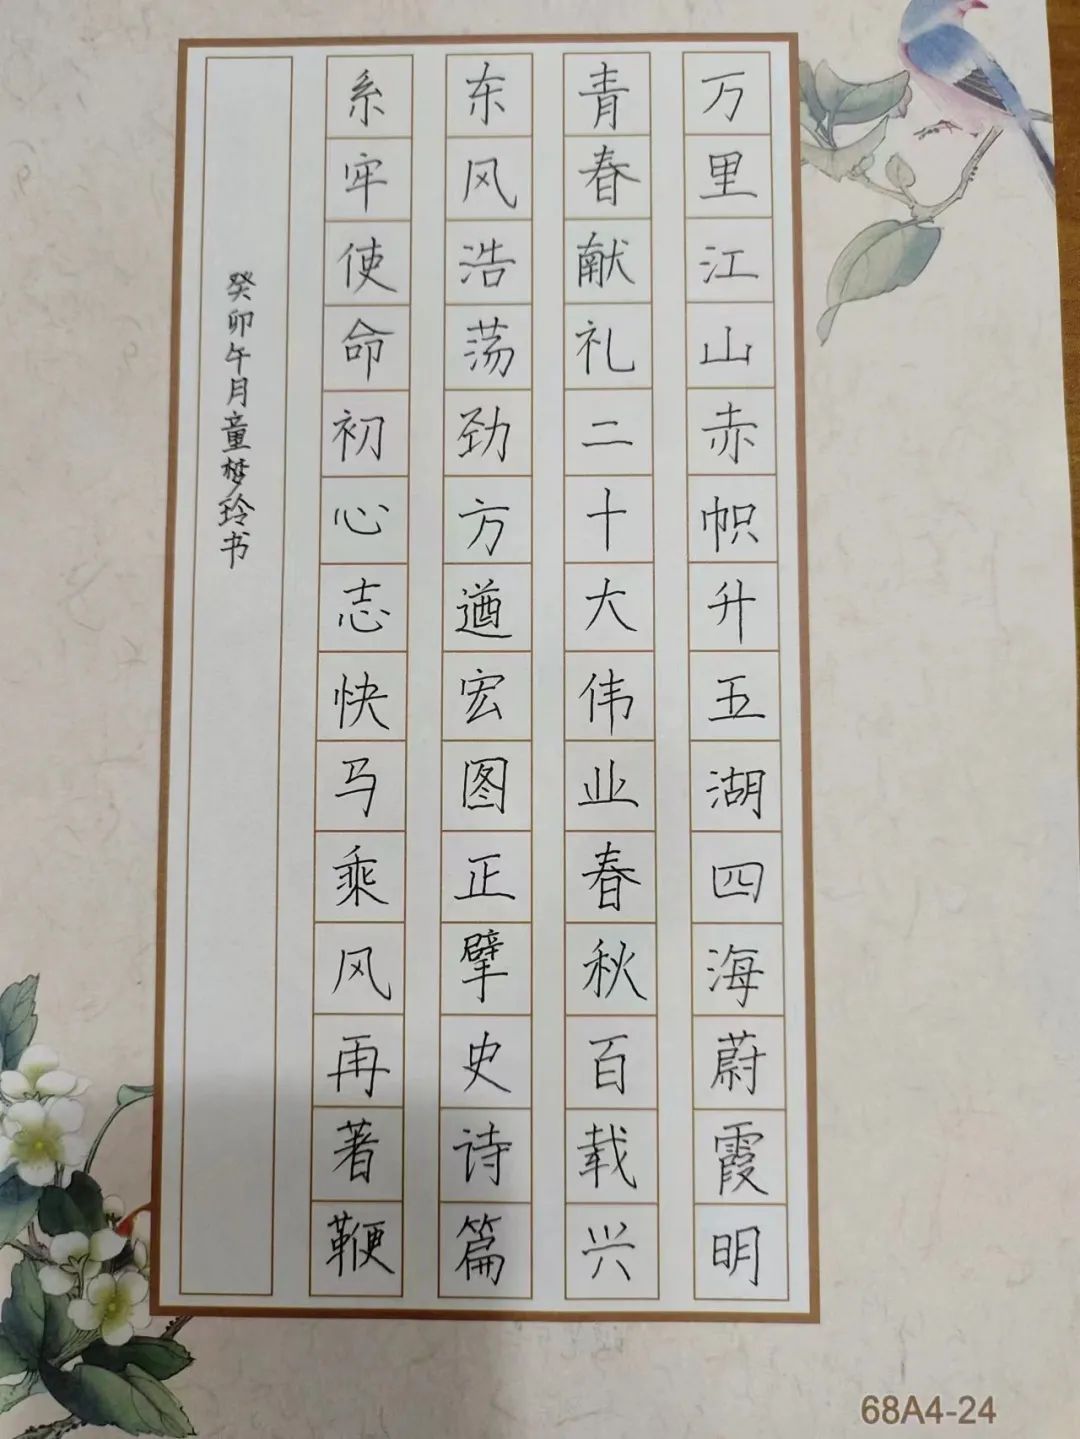 万里江山赤帜升五湖四海蔚霞明
青春献礼二十大伟业春秋百载兴
东风浩荡劲方遒宏图正擘史诗篇
系牢使命初心志快马乘风再著鞭
癸卯午月童梦玲书
68A4-24